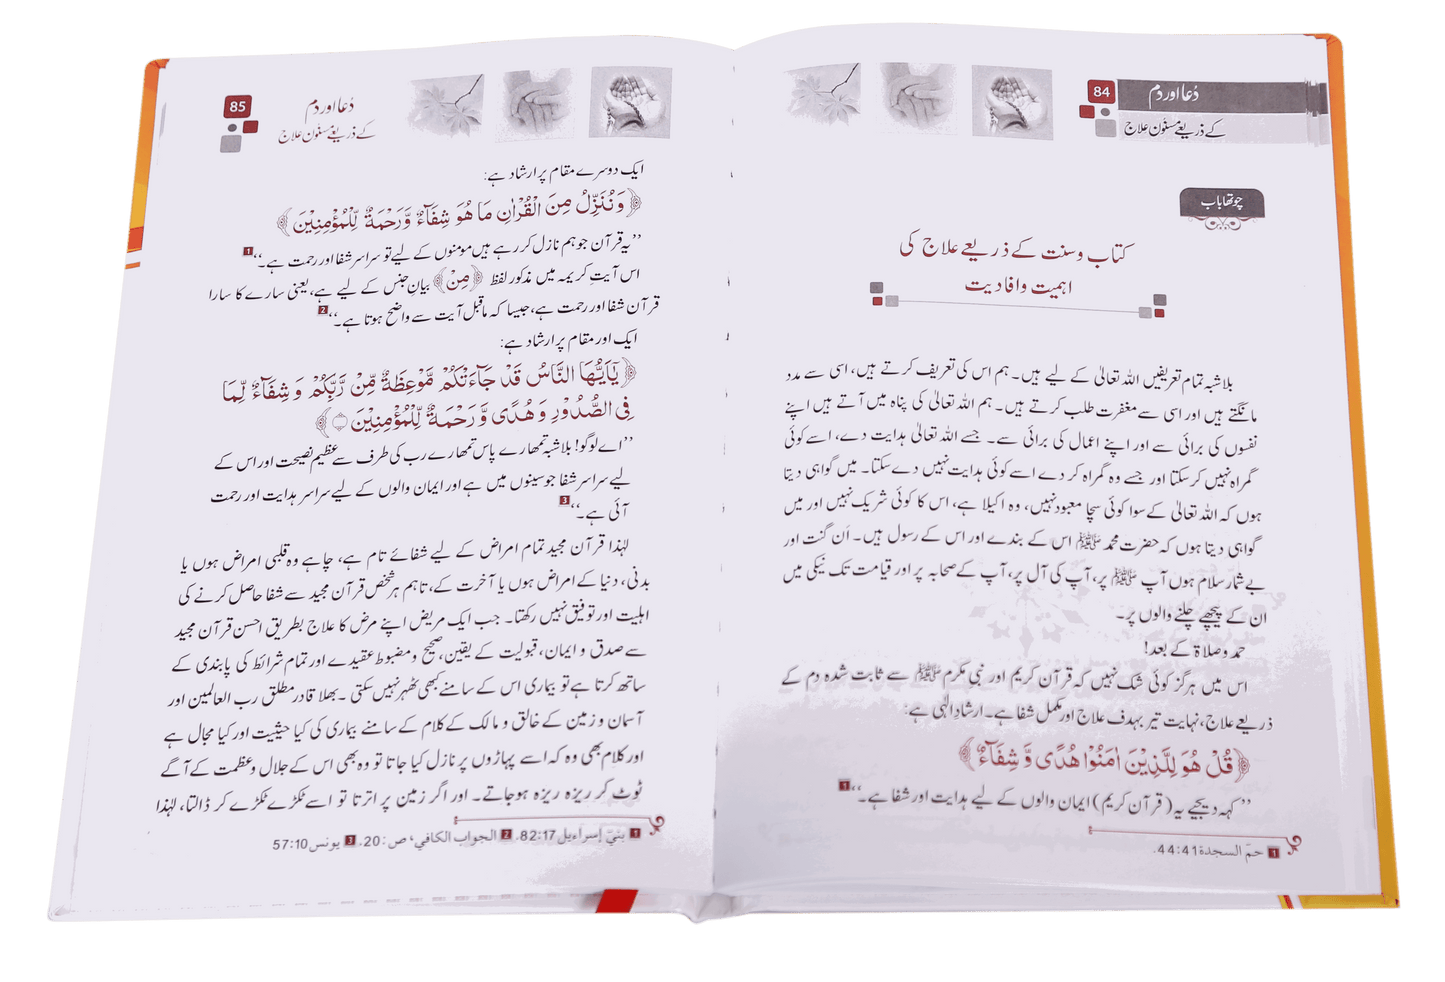 84
دُعا اور دم
کے ذریعے مسنون علاج
چوتھا باب
کتاب وسنت کے ذریعے علاج کی
اہمیت و افادیت
بلاشبہ تمام تعریفیں اللہ تعالیٰ کے لیے ہیں۔ ہم اس کی تعریف کرتے ہیں، اسی سے مدد
مانگتے ہیں اور اسی سے مغفرت طلب کرتے ہیں۔ ہم اللہ تعالیٰ کی پناہ میں آتے ہیں اپنے
نفسوں کی برائی سے اور اپنے اعمال کی برائی سے۔ جسے اللہ تعالیٰ ہدایت دے، اسے کوئی
گمراہ نہیں کرسکتا اور جسے وہ گمراہ کر دے اسے کوئی ہدایت نہیں دے سکتا۔ میں گواہی دیتا
ہوں کہ اللہ تعالیٰ کے سوا کوئی سچا معبود نہیں، وہ اکیلا ہے، اس کا کوئی شریک نہیں اور میں
گواہی دیتا ہوں کہ حضرت محمد ﷺ اس کے بندے اور اس کے رسول ہیں۔ اَن گنت اور
بے شمار سلام ہوں آپ ﷺ پر، آپ کی آل پر، آپ کے صحابہ پر اور قیامت تک نیکی میں
ان کے پیچھے چلنے والوں پر۔
حمد وصلاۃ کے بعد!
اس میں ہرگز کوئی شک نہیں کہ قرآن کریم اور نبی مکرم ﷺ سے ثابت شدہ دم کے
ذریعے علاج، نہایت تیر بہدف علاج اور مکمل شفا ہے۔ ارشاد الٰہی ہے:
﴿قُلْ هُوَ لِلَّذِيْنَ اٰمَنُوْا هُدًى وَّ شِفَآءٌ﴾
’’کہہ دیجیے یہ (قرآن کریم) ایمان والوں کے لیے ہدایت اور شفا ہے۔‘‘ 1
1 حمٓ السجدة 44:41.
85
دُعا اور دم
کے ذریعے مسنون علاج
ایک دوسرے مقام پر ارشاد ہے:
﴿وَنُنَزِّلُ مِنَ الْقُرْاٰنِ مَا هُوَ شِفَآءٌ وَّرَحْمَةٌ لِّلْمُؤْمِنِيْنَ﴾
’’یہ قرآن جو ہم نازل کر رہے ہیں مومنوں کے لیے تو سراسر شفا اور رحمت ہے۔‘‘ 1
اس آیتِ کریمہ میں مذکور لفظ ﴿مِنْ﴾ بیانِ جنس کے لیے ہے، یعنی سارے کا سارا
قرآن شفا اور رحمت ہے، جیسا کہ ماقبل آیت سے واضح ہوتا ہے۔‘‘ 2
ایک اور مقام پر ارشاد ہے:
﴿يٰٓاَيُّهَا النَّاسُ قَدْ جَآءَتْكُمْ مَّوْعِظَةٌ مِّنْ رَّبِّكُمْ وَ شِفَآءٌ لِّمَا
فِى الصُّدُوْرِ وَ هُدًى وَّ رَحْمَةٌ لِّلْمُؤْمِنِيْنَ﴾
’’اے لوگو! بلاشبہ تمھارے پاس تمھارے رب کی طرف سے عظیم نصیحت اور اس کے
لیے سراسر شفا جو سینوں میں ہے اور ایمان والوں کے لیے سراسر ہدایت اور رحمت
آئی ہے۔‘‘ 3
لہٰذا قرآن مجید تمام امراض کے لیے شفائے تام ہے، چاہے وہ قلبی امراض ہوں یا
بدنی، دنیا کے امراض ہوں یا آخرت کے، تاہم ہر شخص قرآن مجید سے شفا حاصل کرنے کی
اہلیت اور توفیق نہیں رکھتا۔ جب ایک مریض اپنے مرض کا علاج بطریق احسن قرآن مجید
سے صدق و ایمان، قبولیت کے یقین، صحیح و مضبوط عقیدے اور تمام شرائط کی پابندی کے
ساتھ کرتا ہے تو بیماری اس کے سامنے کبھی ٹھہر نہیں سکتی۔ بھلا قادر مطلق رب العالمین اور
آسمان و زمین کے خالق و مالک کے کلام کے سامنے بیماری کی کیا حیثیت اور کیا مجال ہے
اور کلام بھی وہ کہ اسے پہاڑوں پر نازل کیا جاتا تو وہ بھی اس کے جلال وعظمت کے آگے
ٹوٹ کر ریزہ ریزہ ہوجاتے۔ اور اگر زمین پر اترتا تو اسے ٹکڑے ٹکڑے کر ڈالتا، لہٰذا
1 بنيٓ إسرآءيل 82:17. 2 الجواب الكافي، ص: 20. 3 يونس 57:10